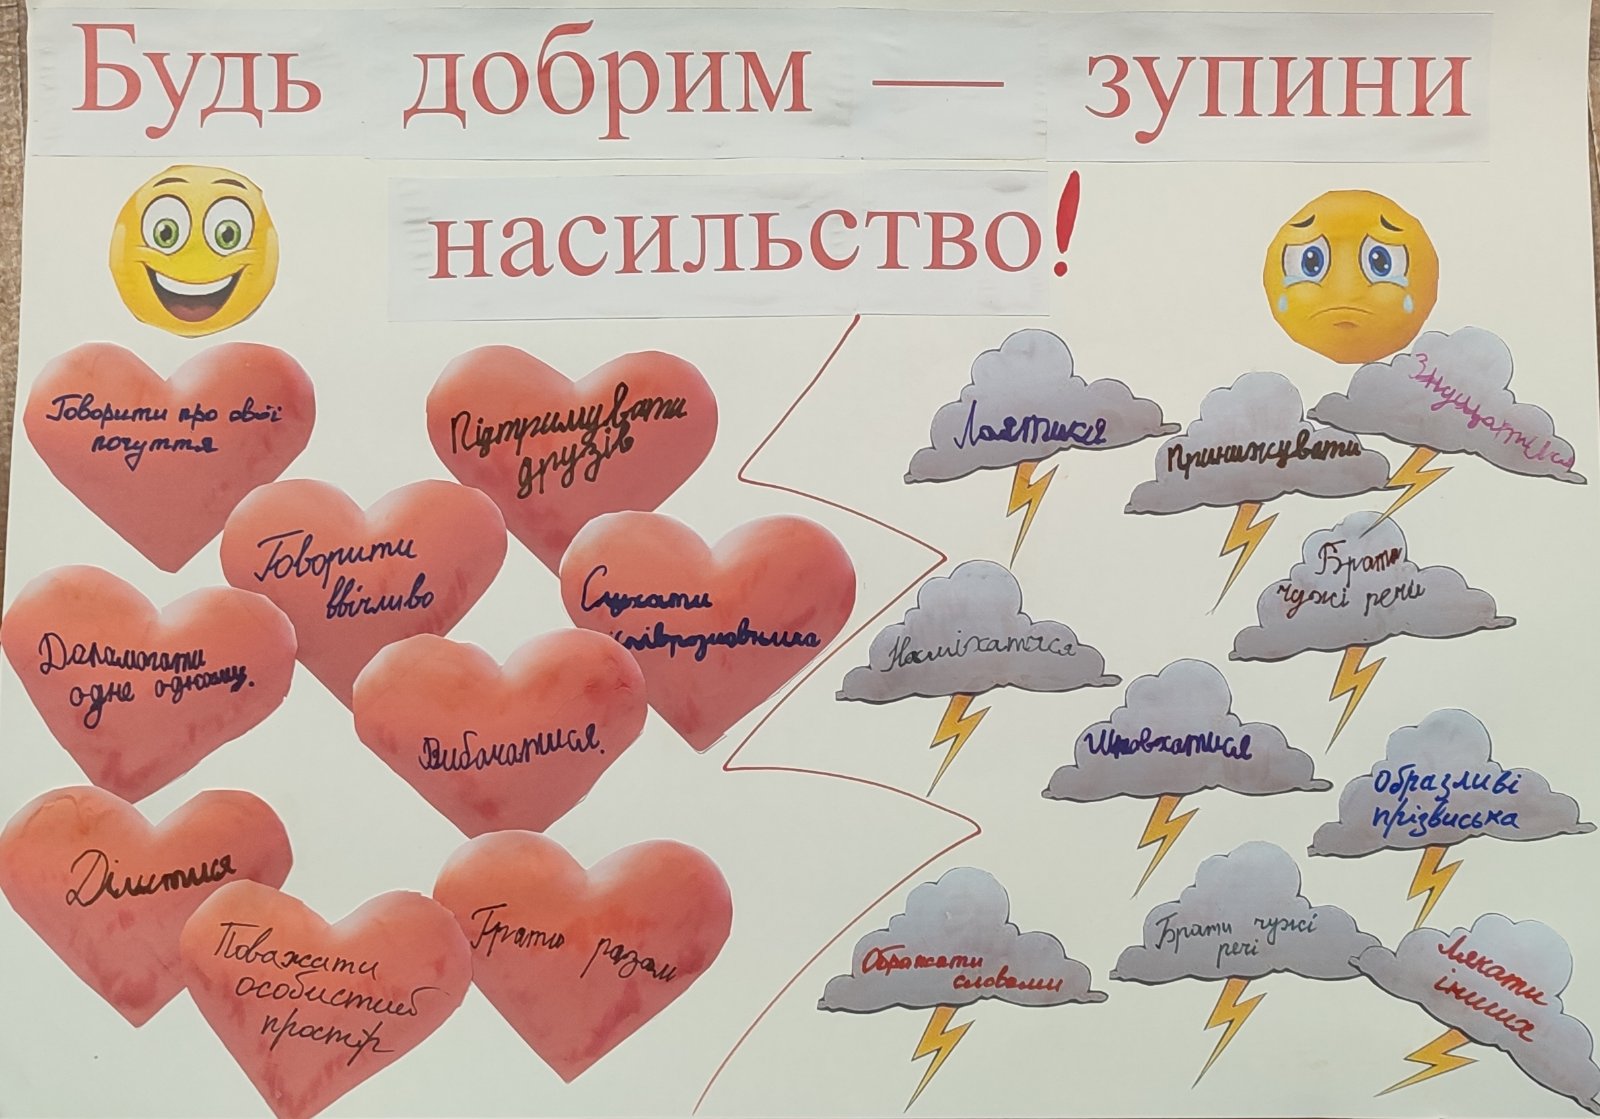 Будь добрим — зупини
насильство!
Говорити про свої
почуття
Підтримувати
друзів
Говорити
ввічливо
Слухати
співрозмовника
Допомагати
одне одному.
Вибачатися.
Ділитися
Поважати
особистий
простір
Грати разом
Лаятися
Принижувати
Знущатися
Брати
чужі речи
Насміхатися
Штовхатися
Образливі
прізвиська
Ображати
словами
Брати чужі
речі
Лякати
інших